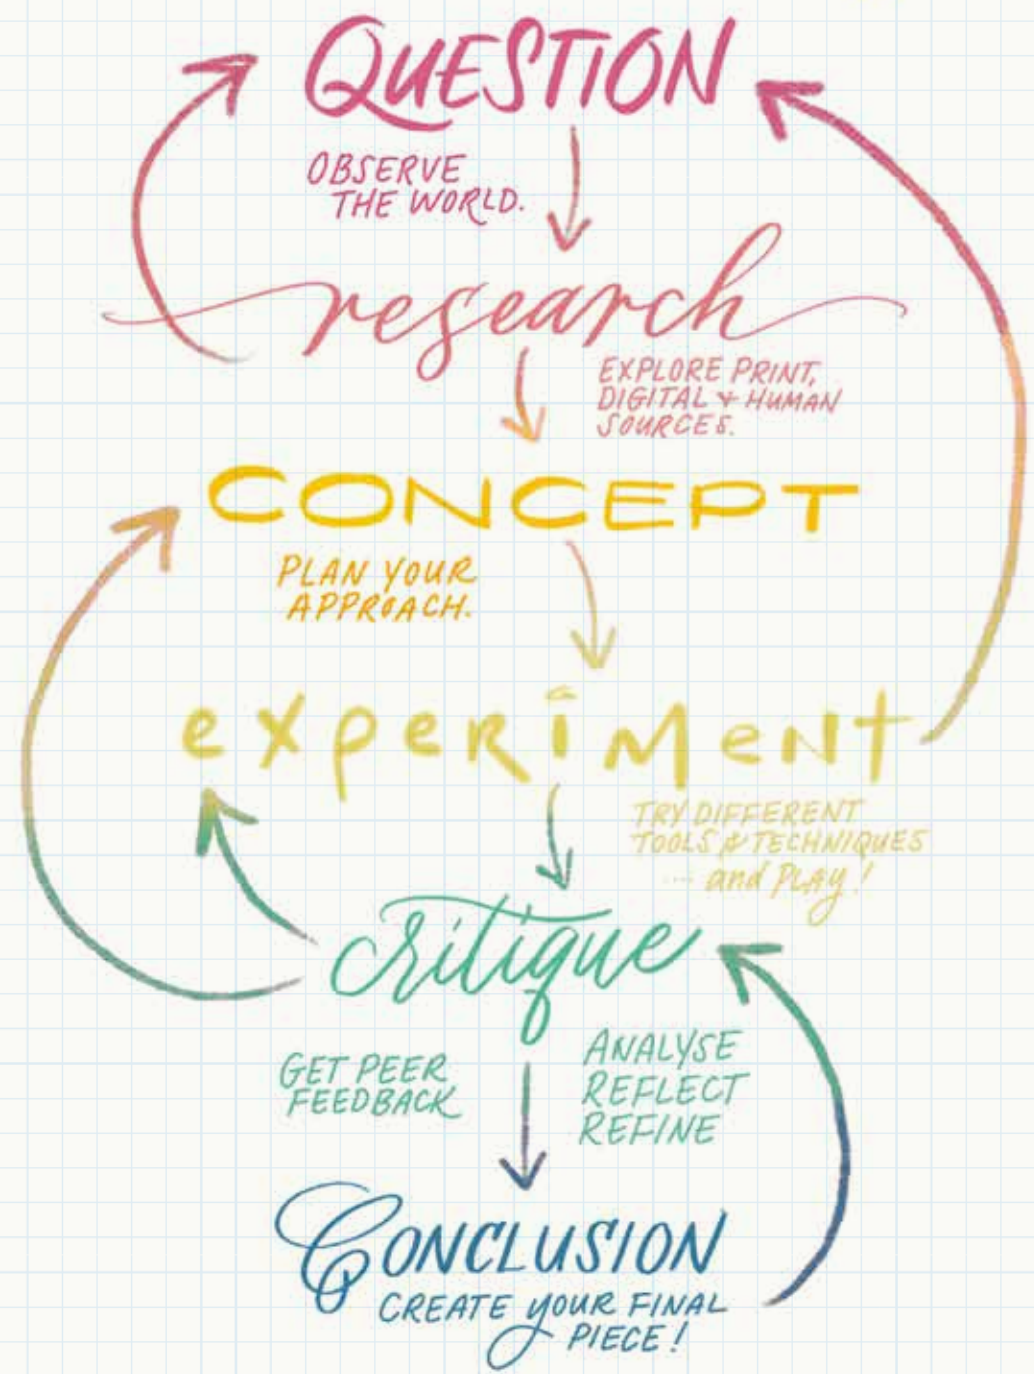 QUESTION
OBSERVE
THE WORLD.
research
EXPLORE PRINT,
DIGITAL & HUMAN
SOURCES.
CONCEPT
PLAN YOUR
APPROACH.
experiment
TRY DIFFERENT
TOOLS & TECHNIQUES
... and PLAY!
critique
GET PEER
FEEDBACK
ANALYSE
REFLECT
REFINE
CONCLUSION
CREATE YOUR FINAL
PIECE!